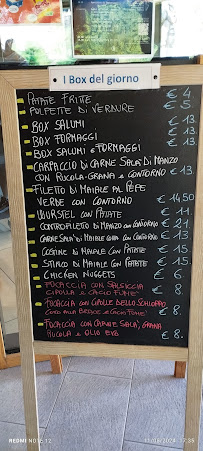 I Box del giorno
PATATE FRITTE € 4
POLPETTE DI VERDURE € 5
BOX SALUMI € 13
BOX FORMAGGI € 13.
BOX SALUMI E FORMAGGI € 13.
CARPACCIO DI CARNE SALA' DI MANZO
CON RUCOLA-GRANA E CONTORNO € 13.
FILETTO DI MAIALE AL PEPE
VERDE CON CONTORNO € 14,50
WÜRSTEL CON PATATE € 11.
CONTROFILETTO DI MANZO CON CONTORNO € 21
CARNE SALA' DI MAIALE CON CONTORNO € 13
COSTINE DI MAIALE CON PATATE € 15.
STINCO DI MAIALE CON PATATE € 15.
CHICKEN NUGGETS € 6
FOCACCIA CON SALSICCIA
CIPOLLA E CACIO FUME' € 8.
FOCACCIA CON
BRACE E CACIO FUME' € 8.
FOCACCIA CON CARNE SALA', GRANA
RUCOLA E OLIO EVO € 8.
REDMI NOTE 12
11/06/2024 17:36